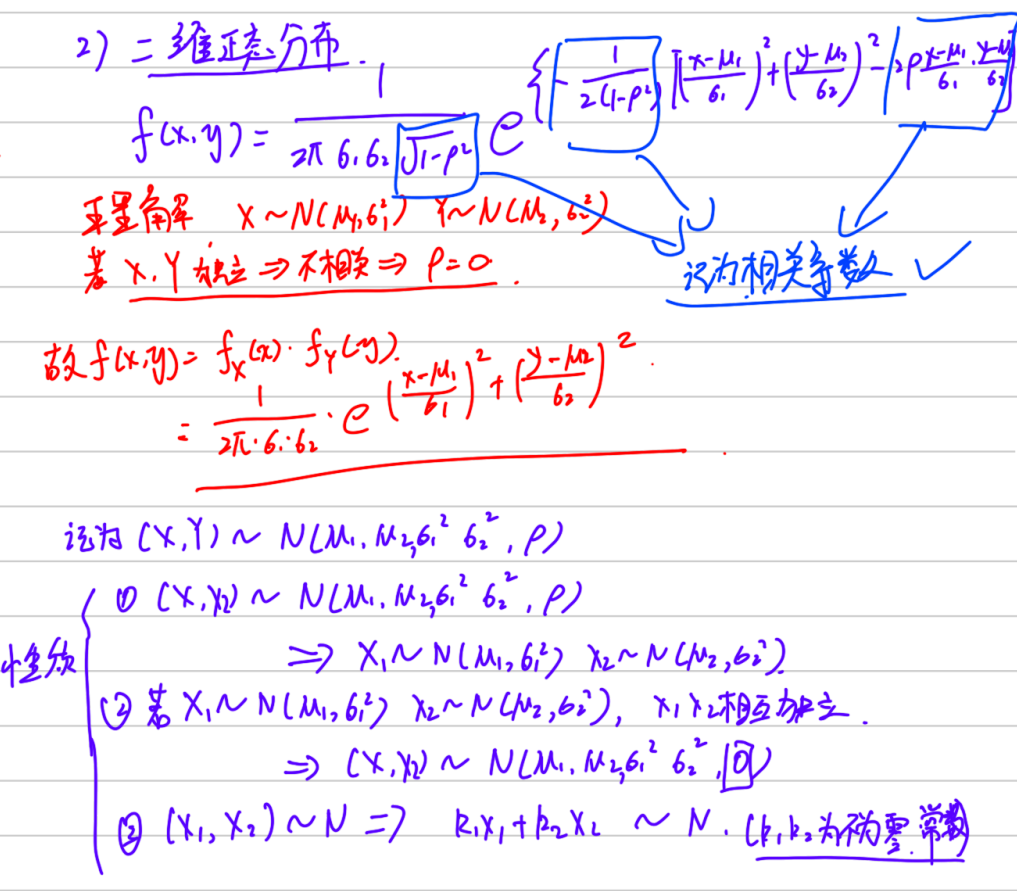 2) 二维正态分布.
f(x,y) = 1/(2π σ₁σ₂ √(1-ρ²)) e^{-1/(2(1-ρ²)) [((x-μ₁)/σ₁)² + ((y-μ₂)/σ₂)² - 2ρ (x-μ₁)/σ₁ · (y-μ₂)/σ₂]
理解 X~N(μ₁,σ₁²) Y~N(μ₂,σ₂²)
若 X,Y 独立 ⇒ 不相关 ⇒ ρ=0.
记为相关系数 ✓
故 f(x,y) = f_X(x)·f_Y(y).
= 1/(2π·σ₁·σ₂) · e^{((x-μ₁)/σ₁)² + ((y-μ₂)/σ₂)²}.
记为 (X,Y) ~ N(μ₁,μ₂,σ₁² σ₂²,ρ)
性质
① (X,X₂) ~ N(μ₁,μ₂,σ₁² σ₂²,ρ)
⇒ X₁~N(μ₁,σ₁²) X₂~N(μ₂,σ₂²)
② 若 X₁~N(μ₁,σ₁²) X₂~N(μ₂,σ₂²), X₁X₂相互独立.
⇒ (X,X₂) ~ N(μ₁,μ₂,σ₁² σ₂²,0)
③ (X₁,X₂)~N ⇒ k₁X₁+k₂X₂ ~ N. (k₁,k₂为不为零常数)